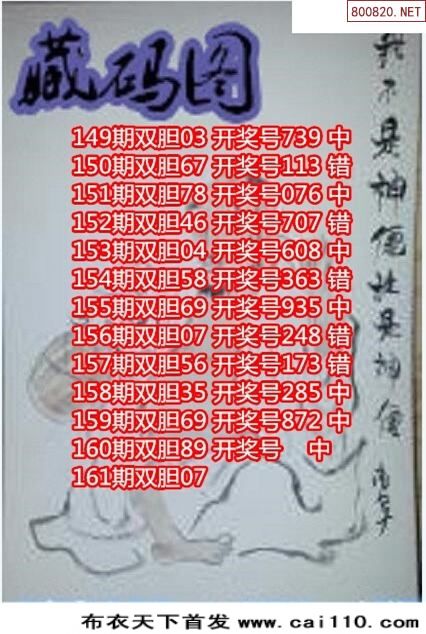 800820.NET
藏码图
149期双胆03 开奖号739 中
150期双胆67 开奖号113 错
151期双胆78 开奖号076 中
152期双胆46 开奖号707 错
153期双胆04 开奖号608 中
154期双胆58 开奖号363 错
155期双胆69 开奖号935 中
156期双胆07 开奖号248 错
157期双胆56 开奖号173 错
158期双胆35 开奖号285 中
159期双胆69 开奖号872 中
160期双胆89 开奖号 中
161期双胆07
我不是神仙
布衣天下首发 www.cai110.com